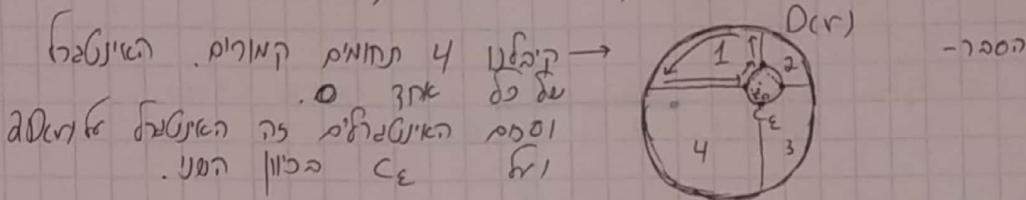 הסבר-
קיבלנו 4 תחומים קמורים. האינטגרל
על כל אחד 0.
וסכום האינטגרלים זה האינטגרל על ∂D(r)
ועל C_ε בכיוון השני.
D(r)
1
2
z₀
C_ε
4
3